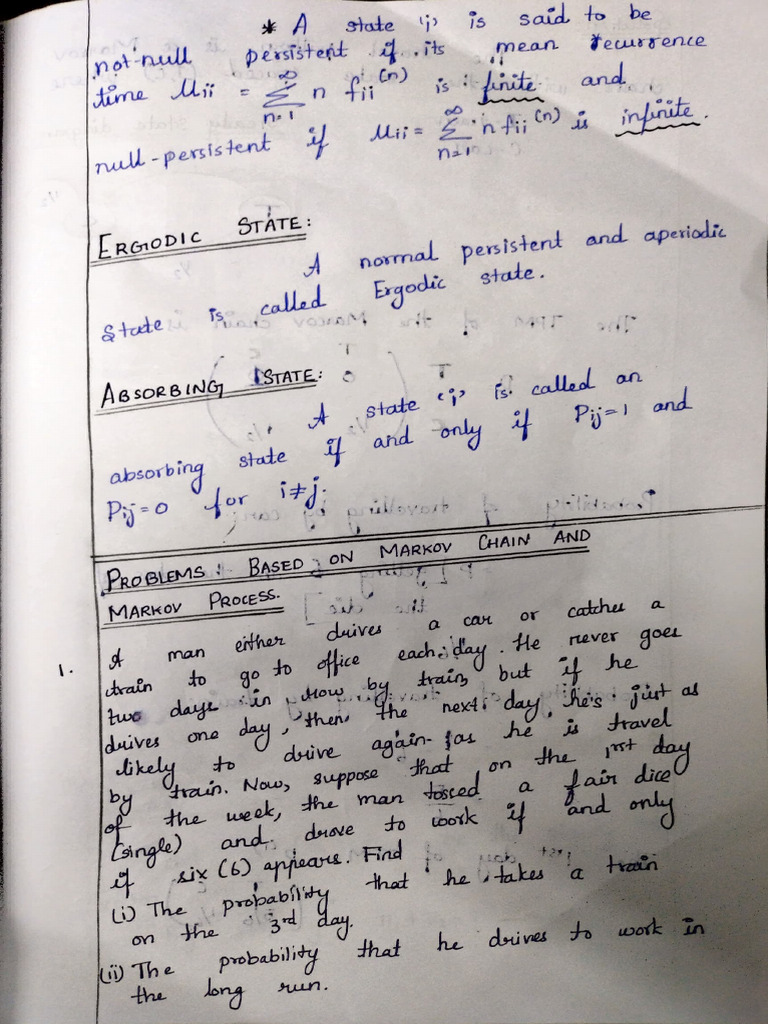 * A state 'i' is said to be
not-null persistent if its mean recurrence
time μii = ∞Σn=1 n fii(n) is finite and
null-persistent if μii = ∞Σn=1 n fii(n) is infinite.
ERGODIC STATE:
A normal persistent and aperiodic
State is called Ergodic state.
ABSORBING STATE:
A state 'i' is called an
absorbing state if and only if Pij=1 and
Pij=0 for i≠j.
PROBLEMS: BASED ON MARKOV CHAIN AND
MARKOV PROCESS.
1. A man either drives a car or catches a
train to go to office each day. He never goes
two days in row by train, but if he
drives one day, then the next day he's just as
likely to drive again as he is travel
by train. Now, suppose that on the 1rst day
of the week, the man tossed a fair dice
(single) and drove to work if and only
if six (6) appears. Find
(i) The probability that he takes a train
on the 3rd day.
(ii) The probability that he drives to work in
the long run.